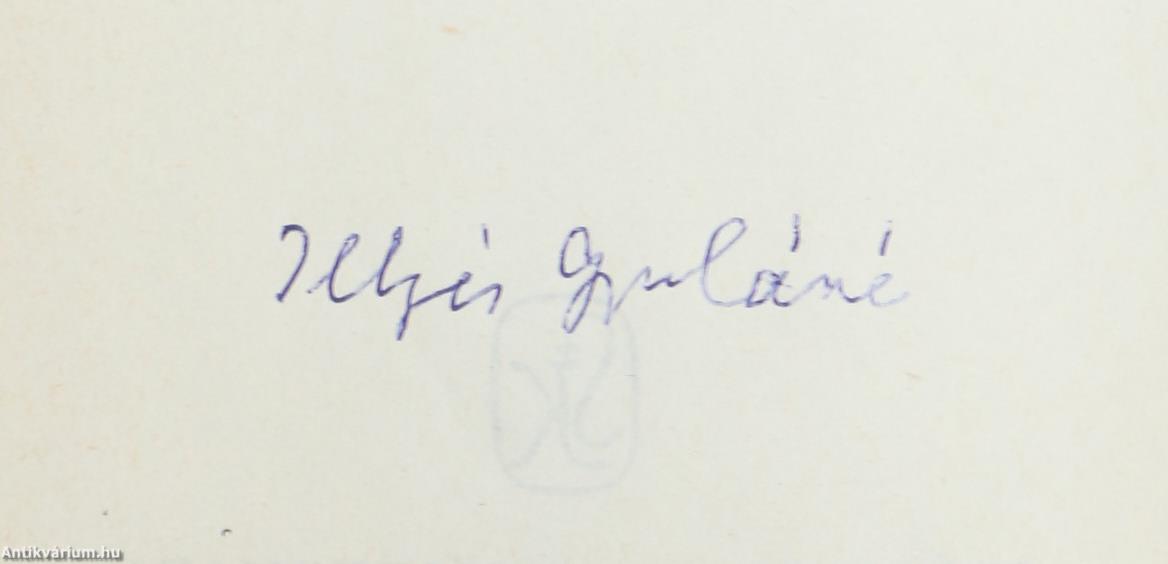 Illyés Gyuláné
Antikvárium.hu